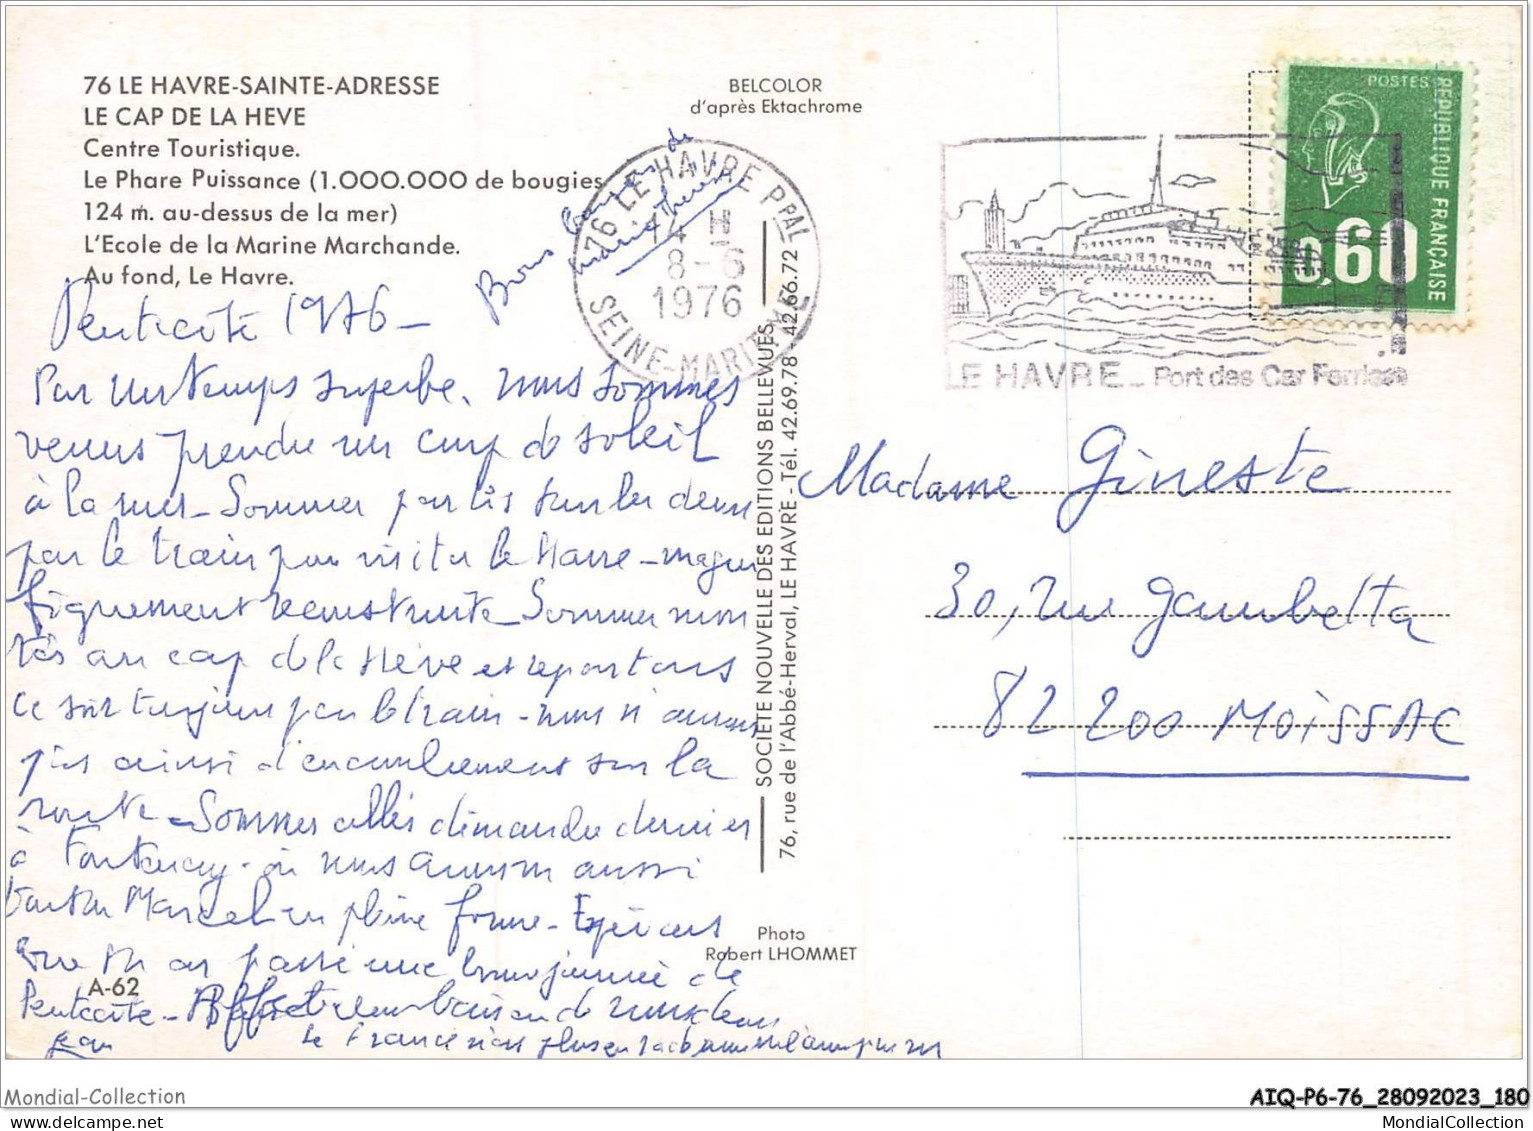 76 LE HAVRE-SAINTE-ADRESSE
LE CAP DE LA HEVE
Centre Touristique.
Le Phare Puissance (1.000.000 de bougies
124 m. au-dessus de la mer)
L'Ecole de la Marine Marchande.
Au fond, Le Havre.
BELCOLOR
d'après Ektachrome
Bons baisers de
Marie Thérèse
76 LE HAVRE PPAL
14 H
8-6
1976
SEINE-MARITIME
POSTES
REPUBLIQUE FRANÇAISE
0,60
LE HAVRE_ Port des Car Ferries
Pentecôte 1976 -
Par un temps superbe, nous sommes
venus prendre un coup de soleil
à la mer - Sommes partis sur les deux
par le train pour visiter le Havre - magni
fiquement reconstruite Sommes mon
tés au cap de la Hève et repartons
ce soir toujours par le train - nous n'aurons
pas ainsi d'encombrement sur la
route - Sommes allés dimanche dernier
à Fontenay - où nous avons aussi
tonton Marcel en pleine forme - Espérons
que tu as passé une bonne journée de
Pentecôte - Affectueux baisers de nous deux
Jean
le France n'est plus en rade
SOCIETE NOUVELLE DES EDITIONS BELLEVUES
76, rue de l'Abbé-Herval, LE HAVRE - Tél. 42.69.78 - 42.66.72
Madame Gineste
30, rue Gambetta
82 200 MOISSAC
Photo
Robert LHOMMET
A-62
Mondial-Collection
www.delcampe.net
AIQ-P6-76_28092023_180
MondialCollection